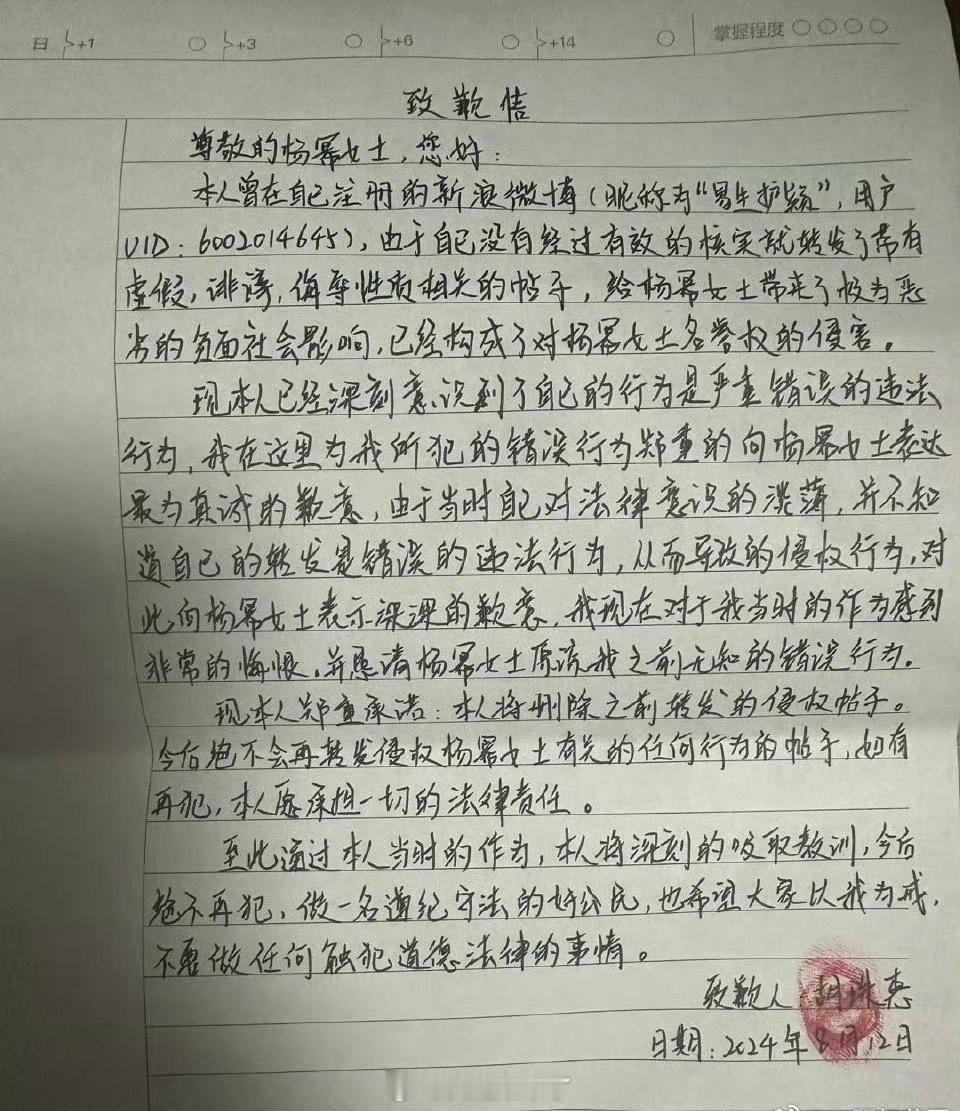 日 +1 +3 +6 +14 掌握程度
致歉信
尊敬的杨幂女士，您好：
本人曾在自己注册的新浪微博（昵称为“易生护颖”，用户
UID：6002014645），由于自己没有经过有效的核实就转发了带有
虚假，诽谤，侮辱性质相关的帖子，给杨幂女士带来了极为恶
劣的负面社会影响，已经构成了对杨幂女士名誉权的侵害。
现本人已经深刻意识到了自己的行为是严重错误的违法
行为，我在这里为我所犯的错误行为郑重的向杨幂女士表达
最为真诚的歉意，由于当时自己对法律意识的淡薄，并不知
道自己的转发是错误的违法行为，从而导致的侵权行为，对
此向杨幂女士表示深深的歉意，我现在对于我当时的作为感到
非常的悔恨，并恳请杨幂女士原谅我之前无知的错误行为。
现本人郑重承诺：本人将删除之前转发的侵权帖子。
今后绝不会再转发侵权杨幂女士有关的任何行为的帖子，如有
再犯，本人愿承担一切的法律责任。
至此通过本人当时的作为，本人将深刻的吸取教训，今后
绝不再犯，做一名遵纪守法的好公民，也希望大家以我为戒，
不要做任何触犯道德法律的事情。
致歉人 胡
日期：2024年8月12日